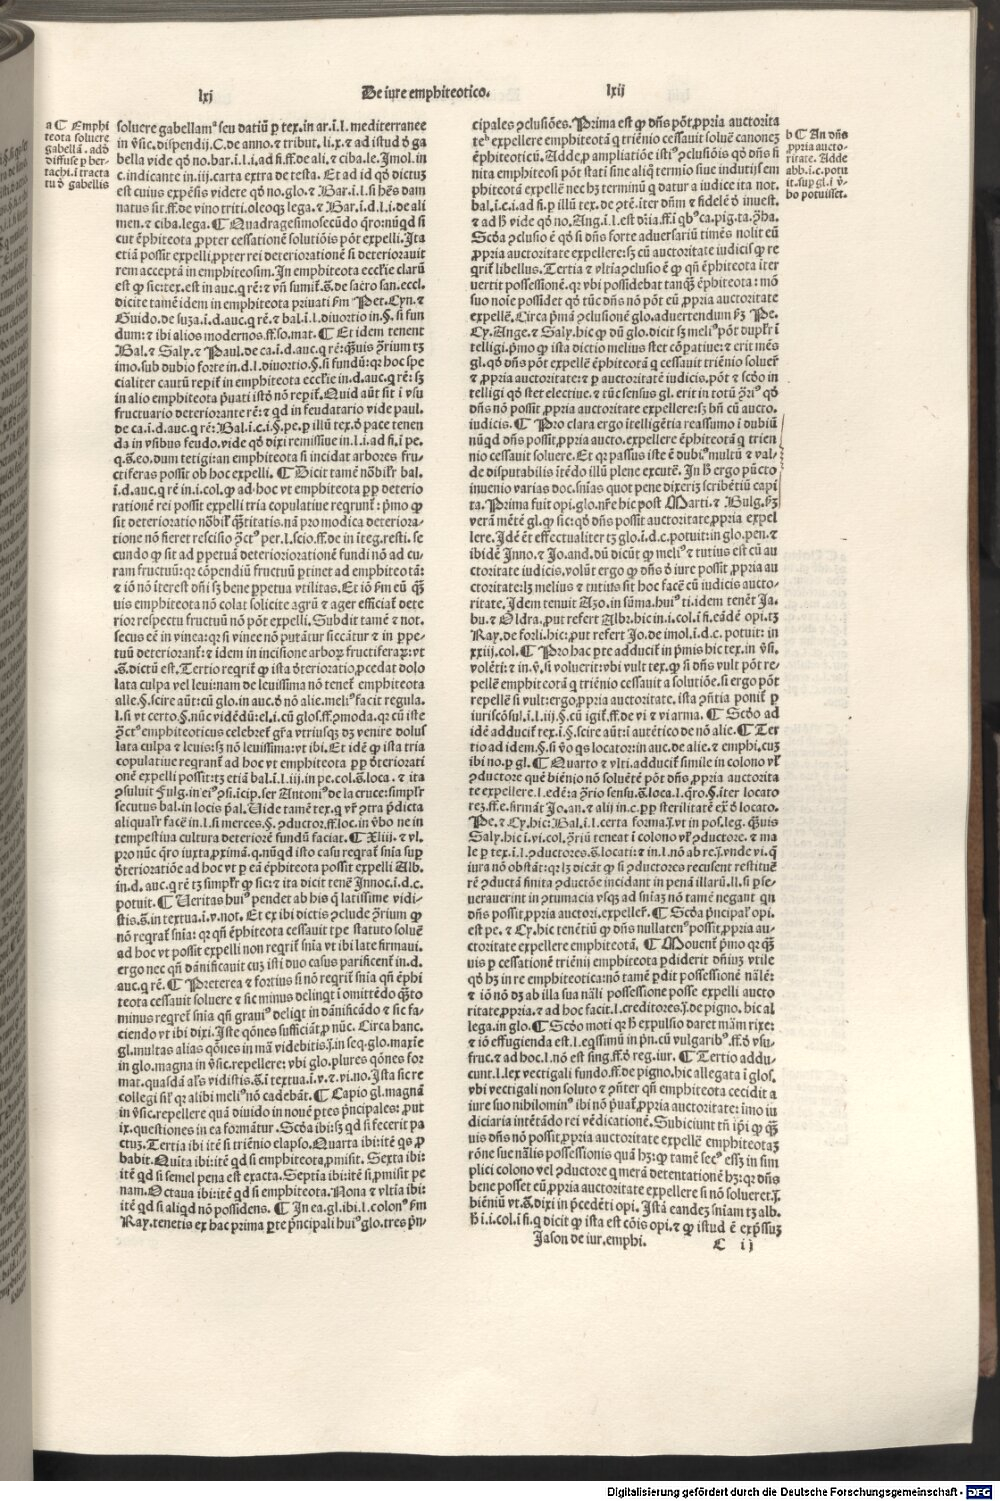 lxj
De iure emphiteotico.
lxij
a ¶ Emphi
teota soluere
gabellā. adde
diffuse p ber-
tachi. i tracta
tu ð gabellis
soluere gabellamª seu datiū p tex. in ar. i. l. mediterranee
in v̄sic. dispendij. C. de anno. & tribut. li. x. & ad istud ð ga
bella vide qð no. bar. i. l. i. ad fi. ff. de ali. & ciba. le. Imol. in
c. indicante in iij. carta extra de testa. Et ad id qð dictuz
est cuius expēsis videte qð no. glo. & Bar. i. l. si hēs dam
natus sit. ff. de vino triti. oleoqz lega. & Bar. i. d. l. i. de ali
men. & ciba. lega. ¶ Quadragesimosecūdo q̄ro: nūqd si
cut ēphiteota ꝓpter cessationē solutiōis pōt expelli. Ita
etiā possit expelli ꝓpter rei deterioratione si deteriorauit
rem acceptā in emphiteosim. In emphiteota eccłie clarū
est ꝙ sic: tex. est in auc. q rē: & vn̄ sumit̄. S. de sacro san. eccl.
dicite tamē idem in emphiteota priuati s̄m Pet. Cyn. &
Guido. de suza. i. d. auc. q rē. & bal. i. l. diuortio in. §. si fun
dum: & ibi alios modernos. ff. so. mat. ¶ Et idem tenent
Bal. & Saly. & Paul. de ca. i. d. auc. q rē: q̄uis ꝯ̄rium tz
imo. sub dubio forte in. d. l. diuortio. §. si fundū: qr hoc spe
cialiter cautū reꝑit̄ in emphiteota eccłie in. d. auc. q rē: sz
in alio emphiteota p̄uati istð nō reꝑit̄. Quid aūt sit i vsu
fructuario deteriorante rē: & qd in feudatario vide paul.
de ca. i. d. auc. q rē: Bal. i. c. i. §. pe. p illū tex. ð pace tenen
da in vsibus feudo. vide qð dixi remissiue in. l. i. ad fi. i pe.
q. S. eo. dum tetigi: an emphiteota si incidat arbores fru-
ctiferas possit ob hoc expelli. ¶ Dicit tamē nōbilr̄ bal.
i. d. auc. q rē in. i. col. ꝙ ad hoc vt emphiteota pp deterio
rationē rei possit expelli tria copulatiue reqrunt̄: p̄mo ꝙ
sit deterioratio nōbil̄ q̄titatis. nā pro modica deteriora-
tione nō fieret rescisio ꝯ̄ctꝰ per. l. scio. ff. de in iteg. resti. se
cundo ꝙ sit ad ꝑpetuā deteriorationē fundi nō ad cu-
ram fructuū: qr cōpendiū fructuū ptinet ad emphiteotā:
& iō nō īterest dn̄i sz bene ꝑpetua vtilitas. Et iō s̄m eū q̄
uis emphiteota nō colat solicite agrū & ager efficiat̄ dete
rior respectu fructuū nō pōt expelli. Subdit tamē & not.
secus eē in vinea: qr si vinee nō putātur siccātur & in ꝑpe-
tuū deteriorant̄: & idem in incisione arboꝝ fructiferaꝝ: vt
S. dictū est. Tertio reqrit̄ ꝙ ista ðterioratio ꝓcedat dolo
lata culpa vel leui: nam de leuissima nō tenet̄ emphiteota
alle. §. scire aūt: cū glo. in auc. ð nō alie. meliꝰ facit regula
l. si vt certo. §. nūc vidēdū: el. i. cū glos. ff. ꝯmoda. qr cū iste
ꝯ̄ctꝰ emphiteoticus celebret̄ gr̄a vtriusqz dz venire dolus
lata culpa & leuis: sz nō leuissima: vt ibi. Et idē ꝙ ista tria
copulatiue reqrant̄ ad hoc vt emphiteota pp ðteriorati
onē expelli possit: tz etiā bal. i. l. iii. in pe. col. S. loca. & ita
ꝯsuluit Fulg. in eiꝰ ꝯsi. icip. ser Antoniꝰ de la cruce: simplr̄
secutus bal. in locis p̄al. Uide tamē tex. q vr̄ ꝯtra p̄dicta
aliqualr̄ facē in. l. si merces. §. ꝯductor. ff. loc. in v̄bo ne in
tempestiua cultura deteriorē fundū faciat. ¶ Xliii. & vl.
pro nūc q̄ro iuxta ꝓximā. q. nūqd isto casu reqrat̄ snīa sup
ðterioratiōe ad hoc vt p eā ēphiteota possit expelli Alb.
in. d. auc. q rē tz simplr̄ ꝙ sic: & ita dicit tenē Innoc. i. d. c.
potuit. ¶ Ueritas huiꝰ pendet ab his q̄ latissime vidi-
stis. S. in textua. i. v. not. Et ex ibi dictis ꝯclude ꝯ̄rium ꝙ
nō reqrat̄ snīa: qr qn̄ ēphiteota cessauit tpe statuto soluē
ad hoc vt possit expelli non reqrit̄ snīa vt ibi late firmaui.
ergo nec qn̄ dānificauit cuz isti duo casus parificent̄ in. d.
auc. q rē. ¶ Preterea & fortius si nō reqrit̄ snīa qn̄ ēphi
teota cessauit soluere & sic minus delinqt i omittēdo q̄to
minus reqret̄ snīa qn̄ grauiꝰ deliqt in dānificādo & sic fa-
ciendo vt ibi dixi. Iste qōnes sufficiāt ꝓ nūc. Circa hanc.
gl. multas alias qōnes in mā videbitis. J. in seq. glo. maxīe
in glo. magna in v̄sic. repellere: vbi glo. plures qōnes for
mat. quasdā al's vidistis. S. i textua. i. v. & vi. no. Ista sic re
collegi sil̄ qr alibi meliꝰ nō cadebāt. ¶ Capio gl. magnā
in v̄sic. repellere quā diuido in nouē ꝑtes p̄ncipales: ꝓut
ix. questiones in ea formātur. Scda ibi: sz qd si fecerit pa
ctuz. Tertia ibi itē si triēnio elapso. Quarta ibi: itē qs ꝓ
babit. Quīta ibi: itē qd si emphiteota ꝓmisit. Sexta ibi:
itē qd si semel pena est exacta. Septīa ibi: itē si ꝓmisit pe
nam. Octaua ibi: itē qd si emphiteota. Nona & vltīa ibi:
itē qd si aliqd nō possidens. ¶ In ea. gl. ibi. l. colonꝰ s̄m
Ray. tenetis ex hac prima ꝑte p̄ncipali huiꝰ glo. tres p̄n/
cipales ꝯclusiōes. Prima est ꝙ dn̄s pōt ꝓpria auctorita
teᵇ expellere emphiteotā q triēnio cessauit soluē canonez
ēphiteoticū. Adde ꝓ ampliatiōe istiꝰ ꝯclusiōis qð dn̄s fi
nita emphiteosi pōt stati sine aliq̄ termio siue indutijs em
phiteotā expellē nec hz terminū q datur a iudice ita not.
bal. i. c. i. ad fi. p illū tex. de ꝯtē. iter dn̄m & fidelē ð inuest.
& ad h̄ vide qð no. Ang. i. l. est dr̄ia. ff. i qbꝰ ca. pig. ta. ꝯ̄ha.
Scda ꝯclusio ē qð si dn̄s forte aduersariū timēs nolit eū
ꝓpria auctoritate expellere: sz cū auctoritate iudicis ꝙ re
qrit̄ libellus. Tertia & vltīa ꝯclusio ē ꝙ qn̄ ēphiteota iter
uertit possessionē. qr vbi possidebat tanq̄ ēphiteota: mō
suo noīe possidet qð tūc dn̄s nō pōt eū ꝓpria auctoritate
expellē. Circa p̄mā ꝯclusionē glo. aduertendum sz Pe.
Cy. Ange. & Saly. hic ꝙ dū glo. dicit sz meliꝰ pōt duplr̄ i
telligi. p̄mo ꝙ ista dictio melius stet cōpatiue: & erit mēs
gl. qð dn̄s pōt expellē ēphiteotā q cessauit triēnio soluer̄
& ꝓpria auctoritate: & p auctoritatē iudicis. pōt & scdo in
telligi qð stet electiue. & tūc sensus gl. erit in totū ꝯ̄riꝰ qð
dn̄s nō possit ꝓpria auctoritate expellere: sz bn̄ cū aucto.
iudicis. ¶ Pro clara ergo itelligētia reassumo i dubiū
nūqd dn̄s possit ꝓpria aucto. expellere ēphiteotā q trien
nio cessauit soluere. Et qr passus iste ē dubiꝰ multū & val-
de disputabilis itēdo illū plene excutē. In h̄ ergo pūcto
inuenio varias doc. snīas quot pene dixerīz scribētiū capi
ta. Prima fuit opi. glo. nr̄e hic post Marti. & Bulg. sz
verā mētē gl. ꝙ sic: qð dn̄s possit auctoritate ꝓpria expel
lere. Idē ēt effectualiter tz glo. i. d. c. potuit: in glo. pen. &
ibidē Inno. & Jo. and. dū dicūt ꝙ meliꝰ & tutius est cū au
ctoritate iudicis. volūt ergo ꝙ dn̄s ð iure possit ꝓpria au
ctoritate: lz melius & tutius sit hoc facē cū iudicis aucto-
ritate. Idem tenuit Azo. in sūma. huiꝰ ti. idem tenēt Ja.
bu. & Oldra. ꝓut refert Albr. hic in. i. col. i fi. eādē opi. tz
Ray. de forli. hic: ꝓut refert Jo. de imol. i. d. c. potuit: in
xxiij. col. ¶ Pro hac ꝑte adducit̄ in p̄mis hic tex. in v̄si.
volēti: & in. v̄. si voluerit: vbi vult tex. ꝙ si dn̄s vult pōt re-
pellē emphiteotā q triēnio cessauit a solutiōe. si ergo pōt
repellē si vult: ergo ꝓpria auctoritate. ista ꝯn̄tia ponit̄ p
iuriscōsul. i. l. iii. §. cū igit̄. ff. de vi & vi arma. ¶ Scdo ad
idē adducit̄ tex. i. §. scire aūt: i autētico de nō alie. ¶ Ter
tio ad idem. §. si v̄o qs locator: in auc. de alie. & emphi. cuz
ibi no. p gl. ¶ Quarto & vlti. adducit̄ simile in colono vl̄
ꝯductore que biēnio nō soluētē pōt dn̄s ꝓpria auctorita
te expellere. l. edē: a ꝯ̄rio sensu. S. loca. l. q̄ro. §. iter locato
rez. ff. e. firmāt Jo. an. & alij in. c. pp sterilitatē ex̄ ð locato.
Pe. & Cy. hic: Bal. i. l. certa forma. J. vt in pos. leg. q̄uis
Saly. hic i. vi. col. ꝯ̄riū teneat i colono vl̄ ꝯductore. & ma
le p tex. i. l. ꝯductores. S. locati: & in. l. nō ab re. J. vnde vi. q̄
iura nō obstāt: qr lz dicāt ꝙ si ꝯductores recusent restituē
rē ꝯductā finita ꝯductōe incidant in penā illarū. ll. si ꝑse-
uerauerint in ꝯtumacia vsqz ad snīaz nō tamē negant qn
dn̄s possit ꝓpria auctori. expeller̄. ¶ Scda p̄ncipal̄ opi.
est pe. & Cy. hic tenētiū ꝙ dn̄s nullatenꝰ possit ꝓpria au-
ctoritate expellere emphiteotā. ¶ Mouent̄ p̄mo qr q̄
uis p cessationē triēnij emphiteota ꝑdiderit dn̄iuz vtile
qð hz in re emphiteotica: nō tamē ꝑdit possessionē nālē:
& iō nō dz ab illa sua nāli possessione posse expelli aucto
ritate ꝓpria. & ad hoc facit. l. creditores. J. de pigno. hic al
lega. in glo. ¶ Scdo moti qr h̄ expulsio daret mām rixe:
& iō effugienda est. l. eqssimū in p̄n. cū vulgaribꝰ. ff. ð vsu-
fruc. & ad hoc. l. nō est sing. ff. ð reg. iur. ¶ Tertio addu-
cunt. l. lex vectigali fundo. ff. de pigno. hic allegata i glos.
vbi vectigali non soluto & ꝯn̄ter qn̄ emphiteota cecidit a
iure suo nihilominꝰ ibi nō p̄uat̄ ꝓpria auctoritate: imo iu
diciaria intētādo rei vēdicationē. Subiciunt tn̄ ipi ꝙ q̄
uis dn̄s nō possit ꝓpria auctoritate expellē emphiteotaz
rōne sue nālis possessionis quā hz: ꝙ tamē secꝰ essz in sim
plici colono vel ꝯductore q merā detentationē hz: qr dn̄s
bene posset eū ꝓpria auctoritate expellere si nō solueret. J.
biēniū vt. S. dixi in p̄cedēti opi. Istā eandez snīam tz alb.
h̄ i. i. col. i fi. q dicit ꝙ ista est cōis opi. & ꝙ istud ē exp̄ssuz
b ¶ An dn̄s
ꝓpria aucto-
ritate. Adde
abb. i. c. potu
it. sup gl. i v̄-
bo potuisset.
Jason de iur. emphi.
C ij
Digitalisierung gefördert durch die Deutsche Forschungsgemeinschaft - DFG